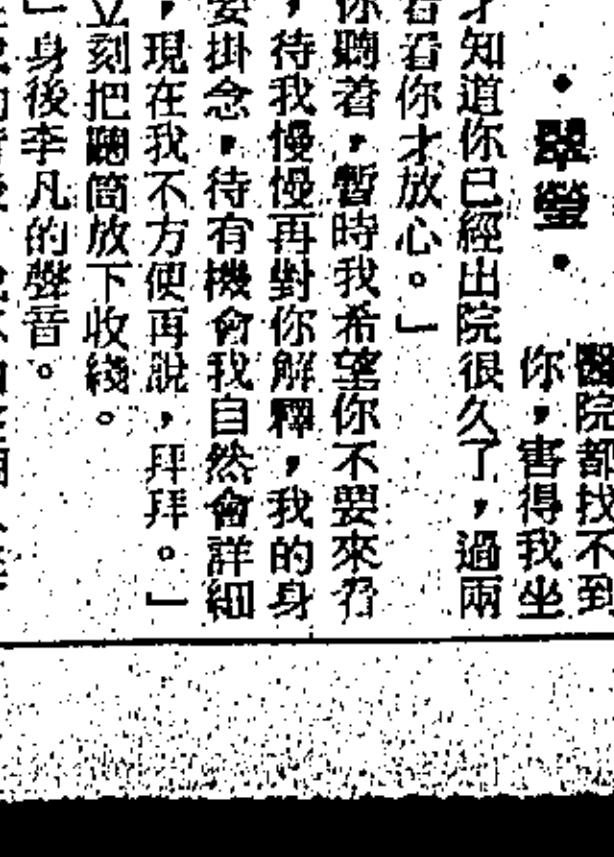 醫院都找不到
·翠瑩·
你，害得我坐
才知道你已經出院很久了，過兩
看看你才放心。」
你聽着，暫時我希望你不要來看
，待我慢慢再對你解釋，我的身
要掛念，待有機會我自然會詳細
，現在我不方便再說，拜拜。」
立刻把聽筒放下收綫。
」身後李凡的聲音。